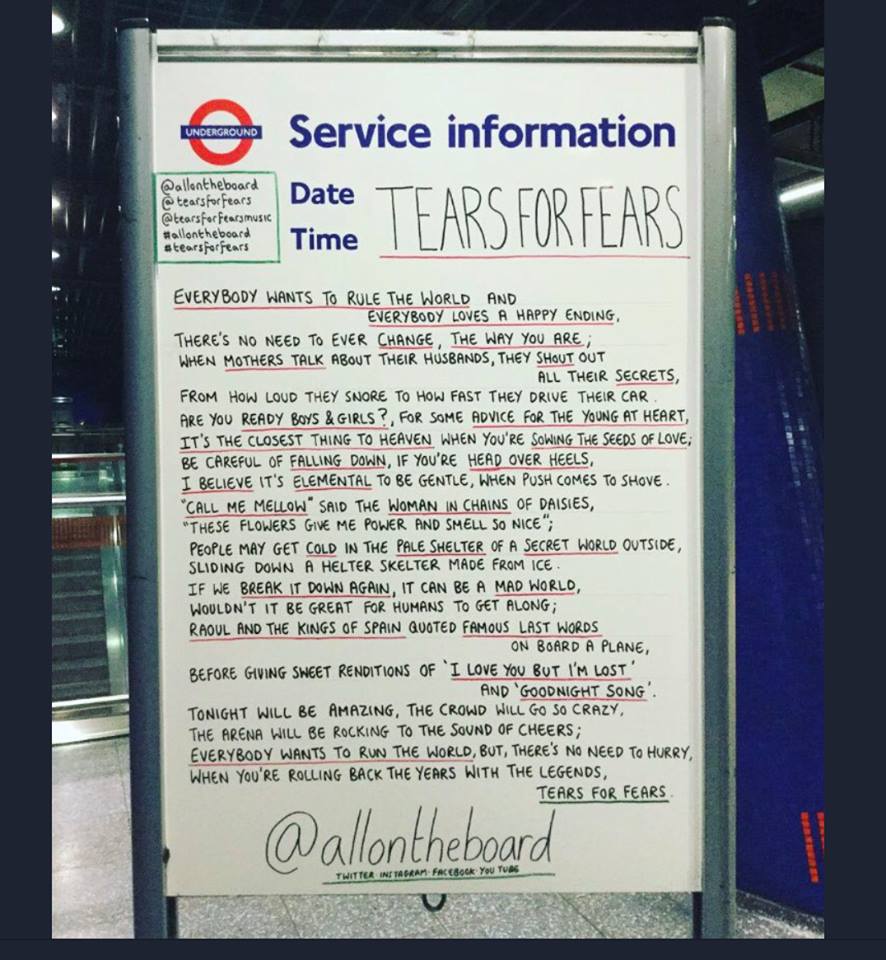 UNDERGROUND
Service information
@allontheboard
@tearsforfears
@tearsforfearsmusic
#allontheboard
#tearsforfears
Date
Time
TEARS FOR FEARS
EVERYBODY WANTS TO RULE THE WORLD AND
EVERYBODY LOVES A HAPPY ENDING,
THERE'S NO NEED TO EVER CHANGE, THE WAY YOU ARE;
WHEN MOTHERS TALK ABOUT THEIR HUSBANDS, THEY SHOUT OUT
ALL THEIR SECRETS,
FROM HOW LOUD THEY SNORE TO HOW FAST THEY DRIVE THEIR CAR.
ARE YOU READY BOYS & GIRLS?, FOR SOME ADVICE FOR THE YOUNG AT HEART,
IT'S THE CLOSEST THING TO HEAVEN WHEN YOU'RE SOWING THE SEEDS OF LOVE;
BE CAREFUL OF FALLING DOWN, IF YOU'RE HEAD OVER HEELS,
I BELIEVE IT'S ELEMENTAL TO BE GENTLE, WHEN PUSH COMES TO SHOVE.
"CALL ME MELLOW" SAID THE WOMAN IN CHAINS OF DAISIES,
"THESE FLOWERS GIVE ME POWER AND SMELL SO NICE";
PEOPLE MAY GET COLD IN THE PALE SHELTER OF A SECRET WORLD OUTSIDE,
SLIDING DOWN A HELTER SKELTER MADE FROM ICE.
IF WE BREAK IT DOWN AGAIN, IT CAN BE A MAD WORLD,
WOULDN'T IT BE GREAT FOR HUMANS TO GET ALONG;
RAOUL AND THE KINGS OF SPAIN QUOTED FAMOUS LAST WORDS
ON BOARD A PLANE,
BEFORE GIVING SWEET RENDITIONS OF 'I LOVE YOU BUT I'M LOST'
AND 'GOODNIGHT SONG'.
TONIGHT WILL BE AMAZING, THE CROWD WILL GO SO CRAZY,
THE ARENA WILL BE ROCKING TO THE SOUND OF CHEERS;
EVERYBODY WANTS TO RUN THE WORLD, BUT, THERE'S NO NEED TO HURRY,
WHEN YOU'RE ROLLING BACK THE YEARS WITH THE LEGENDS,
TEARS FOR FEARS.
@allontheboard
TWITTER · INSTAGRAM · FACEBOOK · YOU TUBE